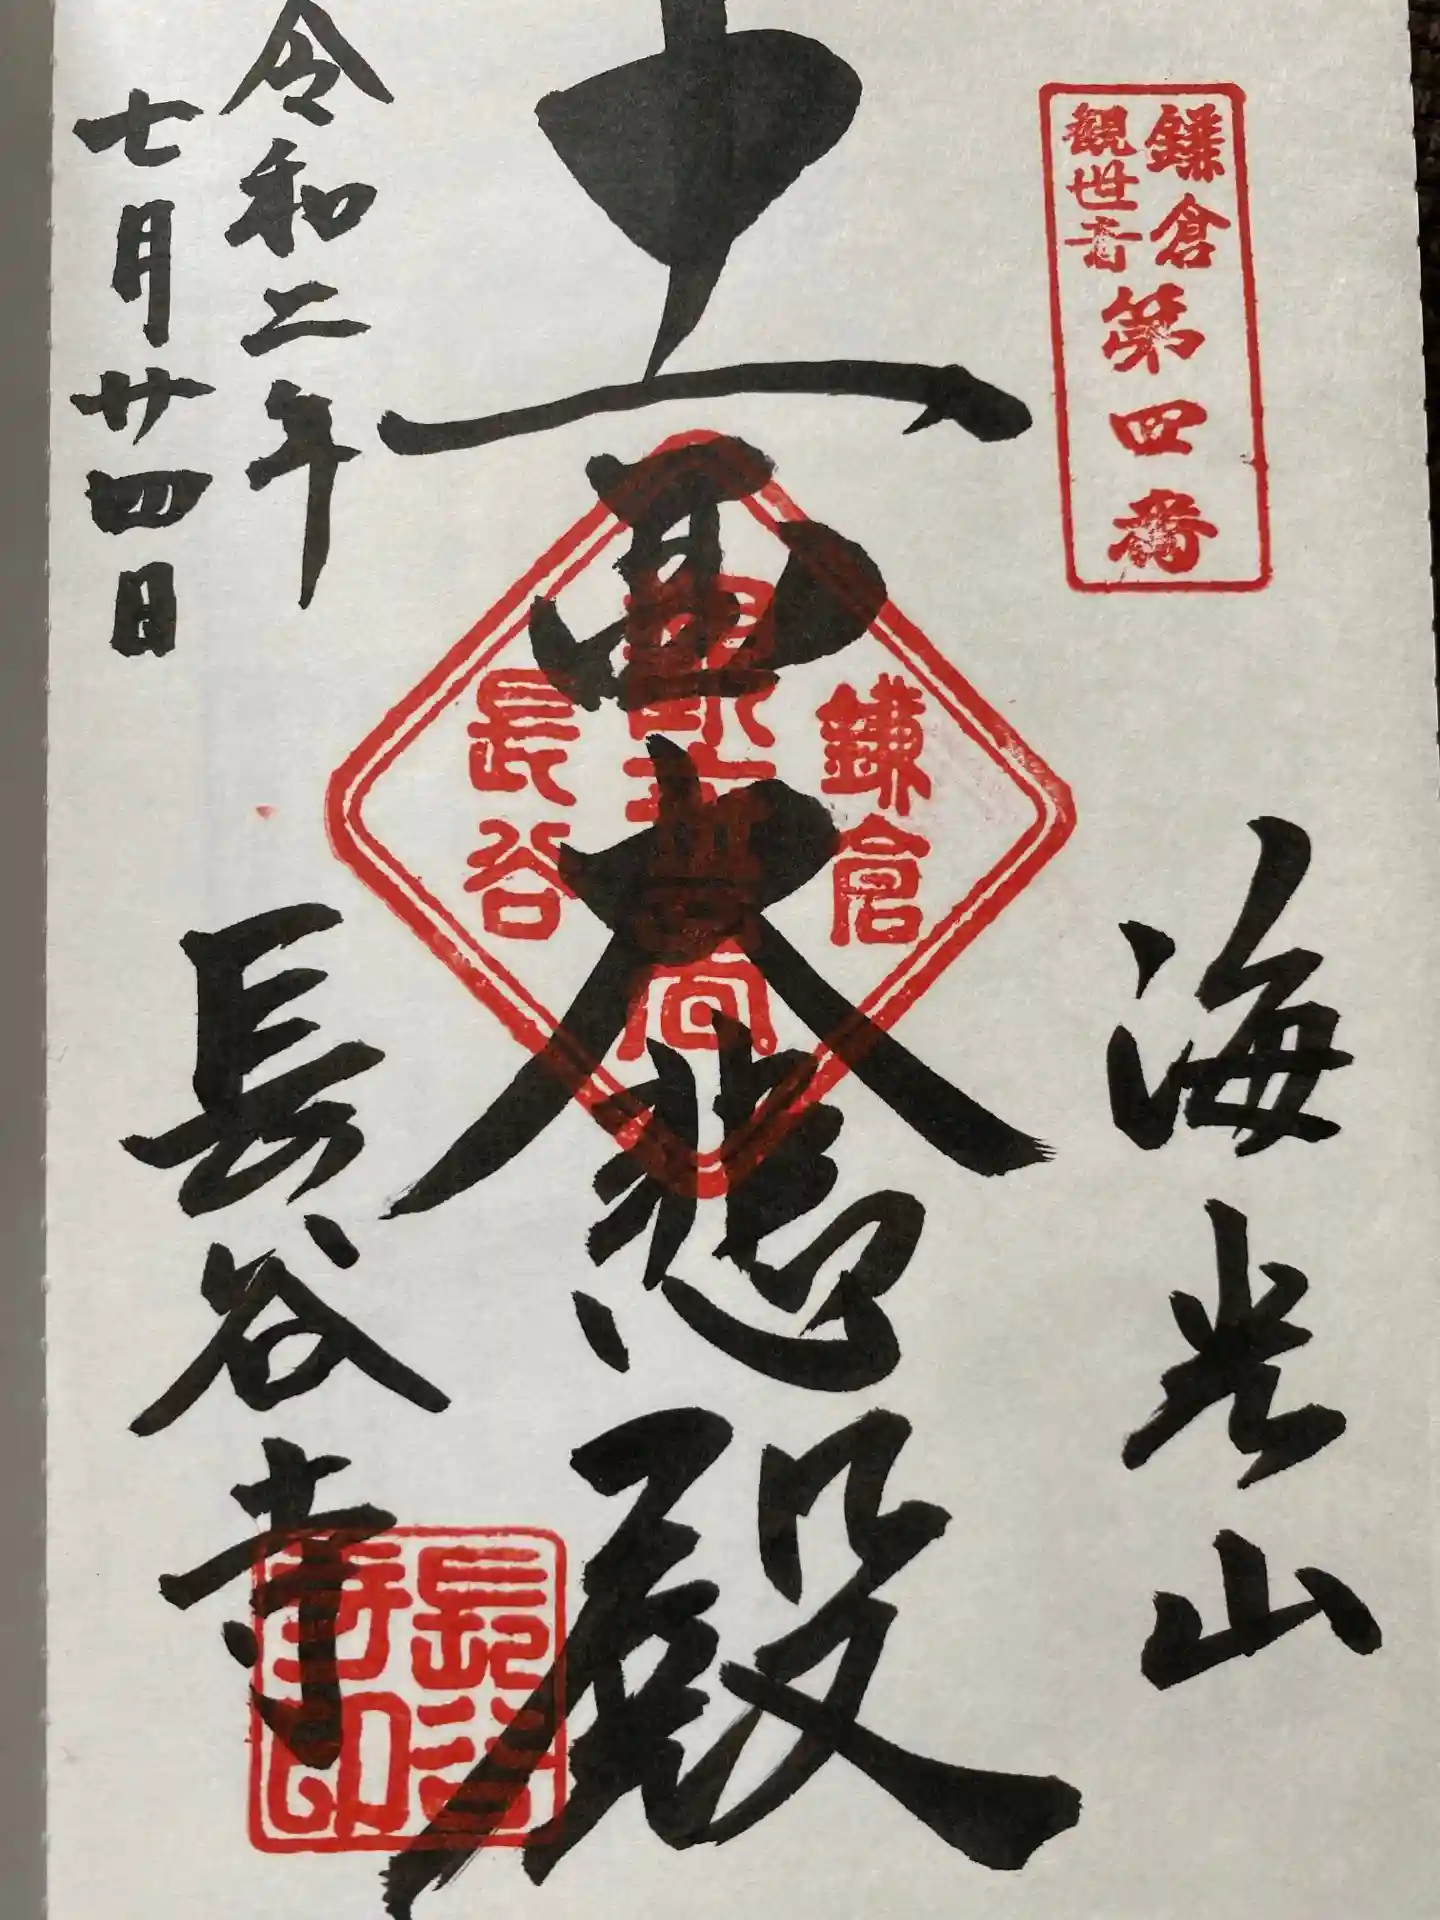 鎌倉
観世音
第四番
海光山
十一面大悲殿
鎌倉
長谷
令和二年
七月廿四日
長谷寺
長谷
寺印